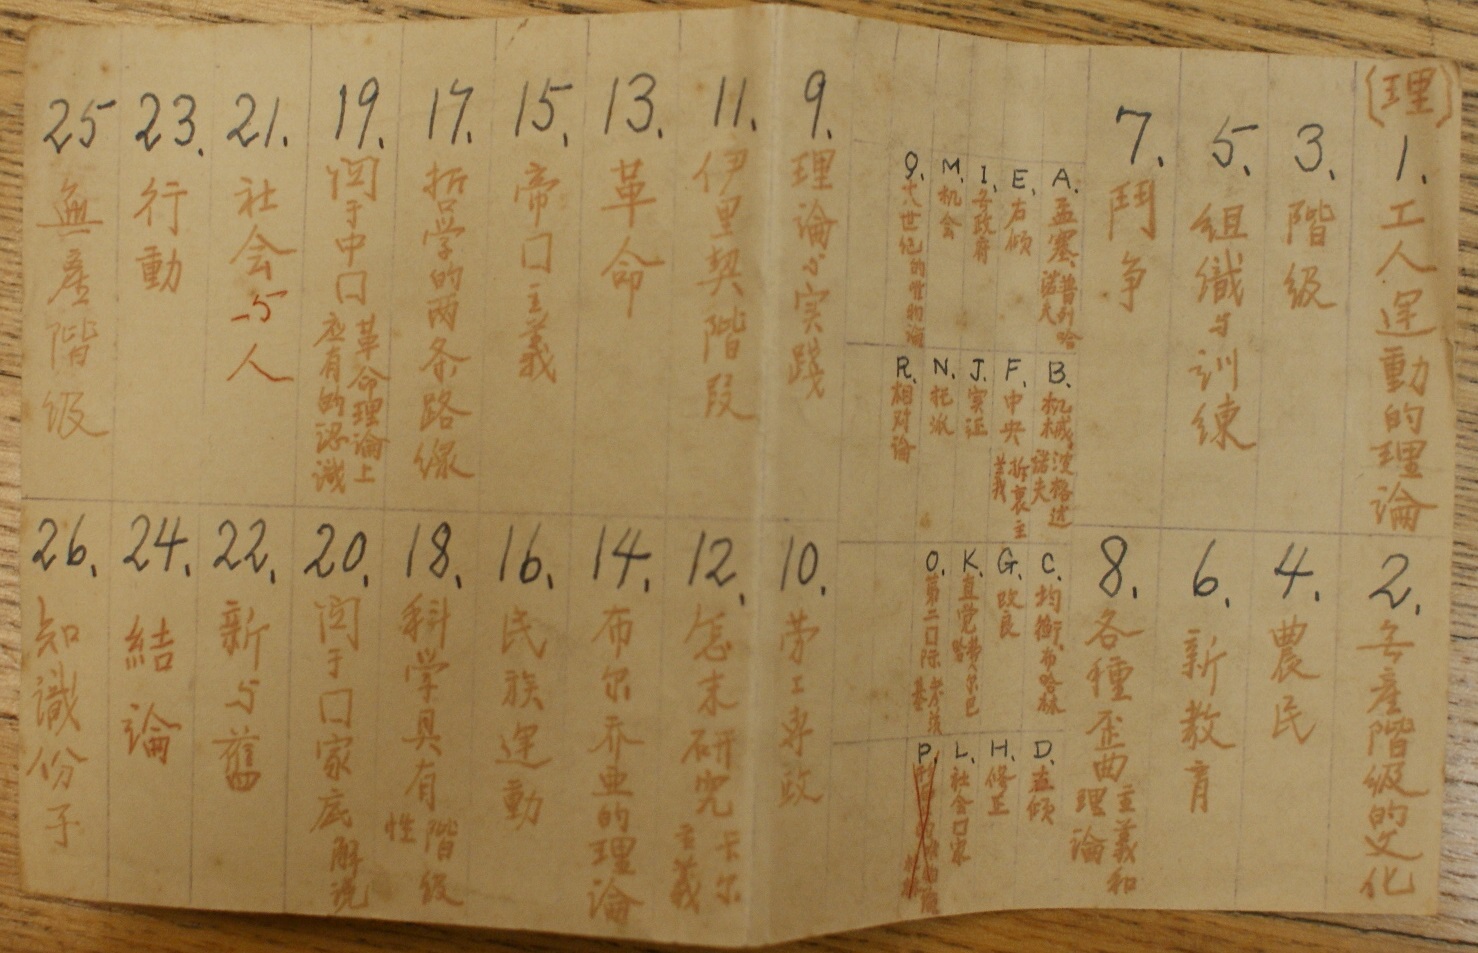 (理)
1. 工人运動的理論
2. 无產階級的文化
3. 階级
4. 農民
5. 組織与訓練
6. 新教育
7. 鬥争
8. 各種歪曲主義和理論
A. 孟塞，普列哈諾夫
B. 机械，波格达諾夫
C. 均衡，布哈林
D. 左傾
E. 右傾
F. 中央 折衷主義
G. 改良
H. 修正
I. 无政府
J. 实证
K. 直覚 費尔巴
L. 社会口家
M. 机会
N. 托派
O. 第二口际 考茨基
P.
Q. 十八世纪的唯物論
R. 相对論
9. 理論与实踐
10. 劳工專政
11. 伊里契階段
12. 怎末研究卡尔主義
13. 革命
14. 布尔乔亚的理論
15. 帝口主義
16. 民族运動
17. 哲学的两条路缐
18. 科学具有階级性
19. 関于中口革命理論上应有的認識
20. 関于口家底解说
21. 社会与人
22. 新与舊
23. 行動
24. 結論
25 無產階级
26. 知識份子